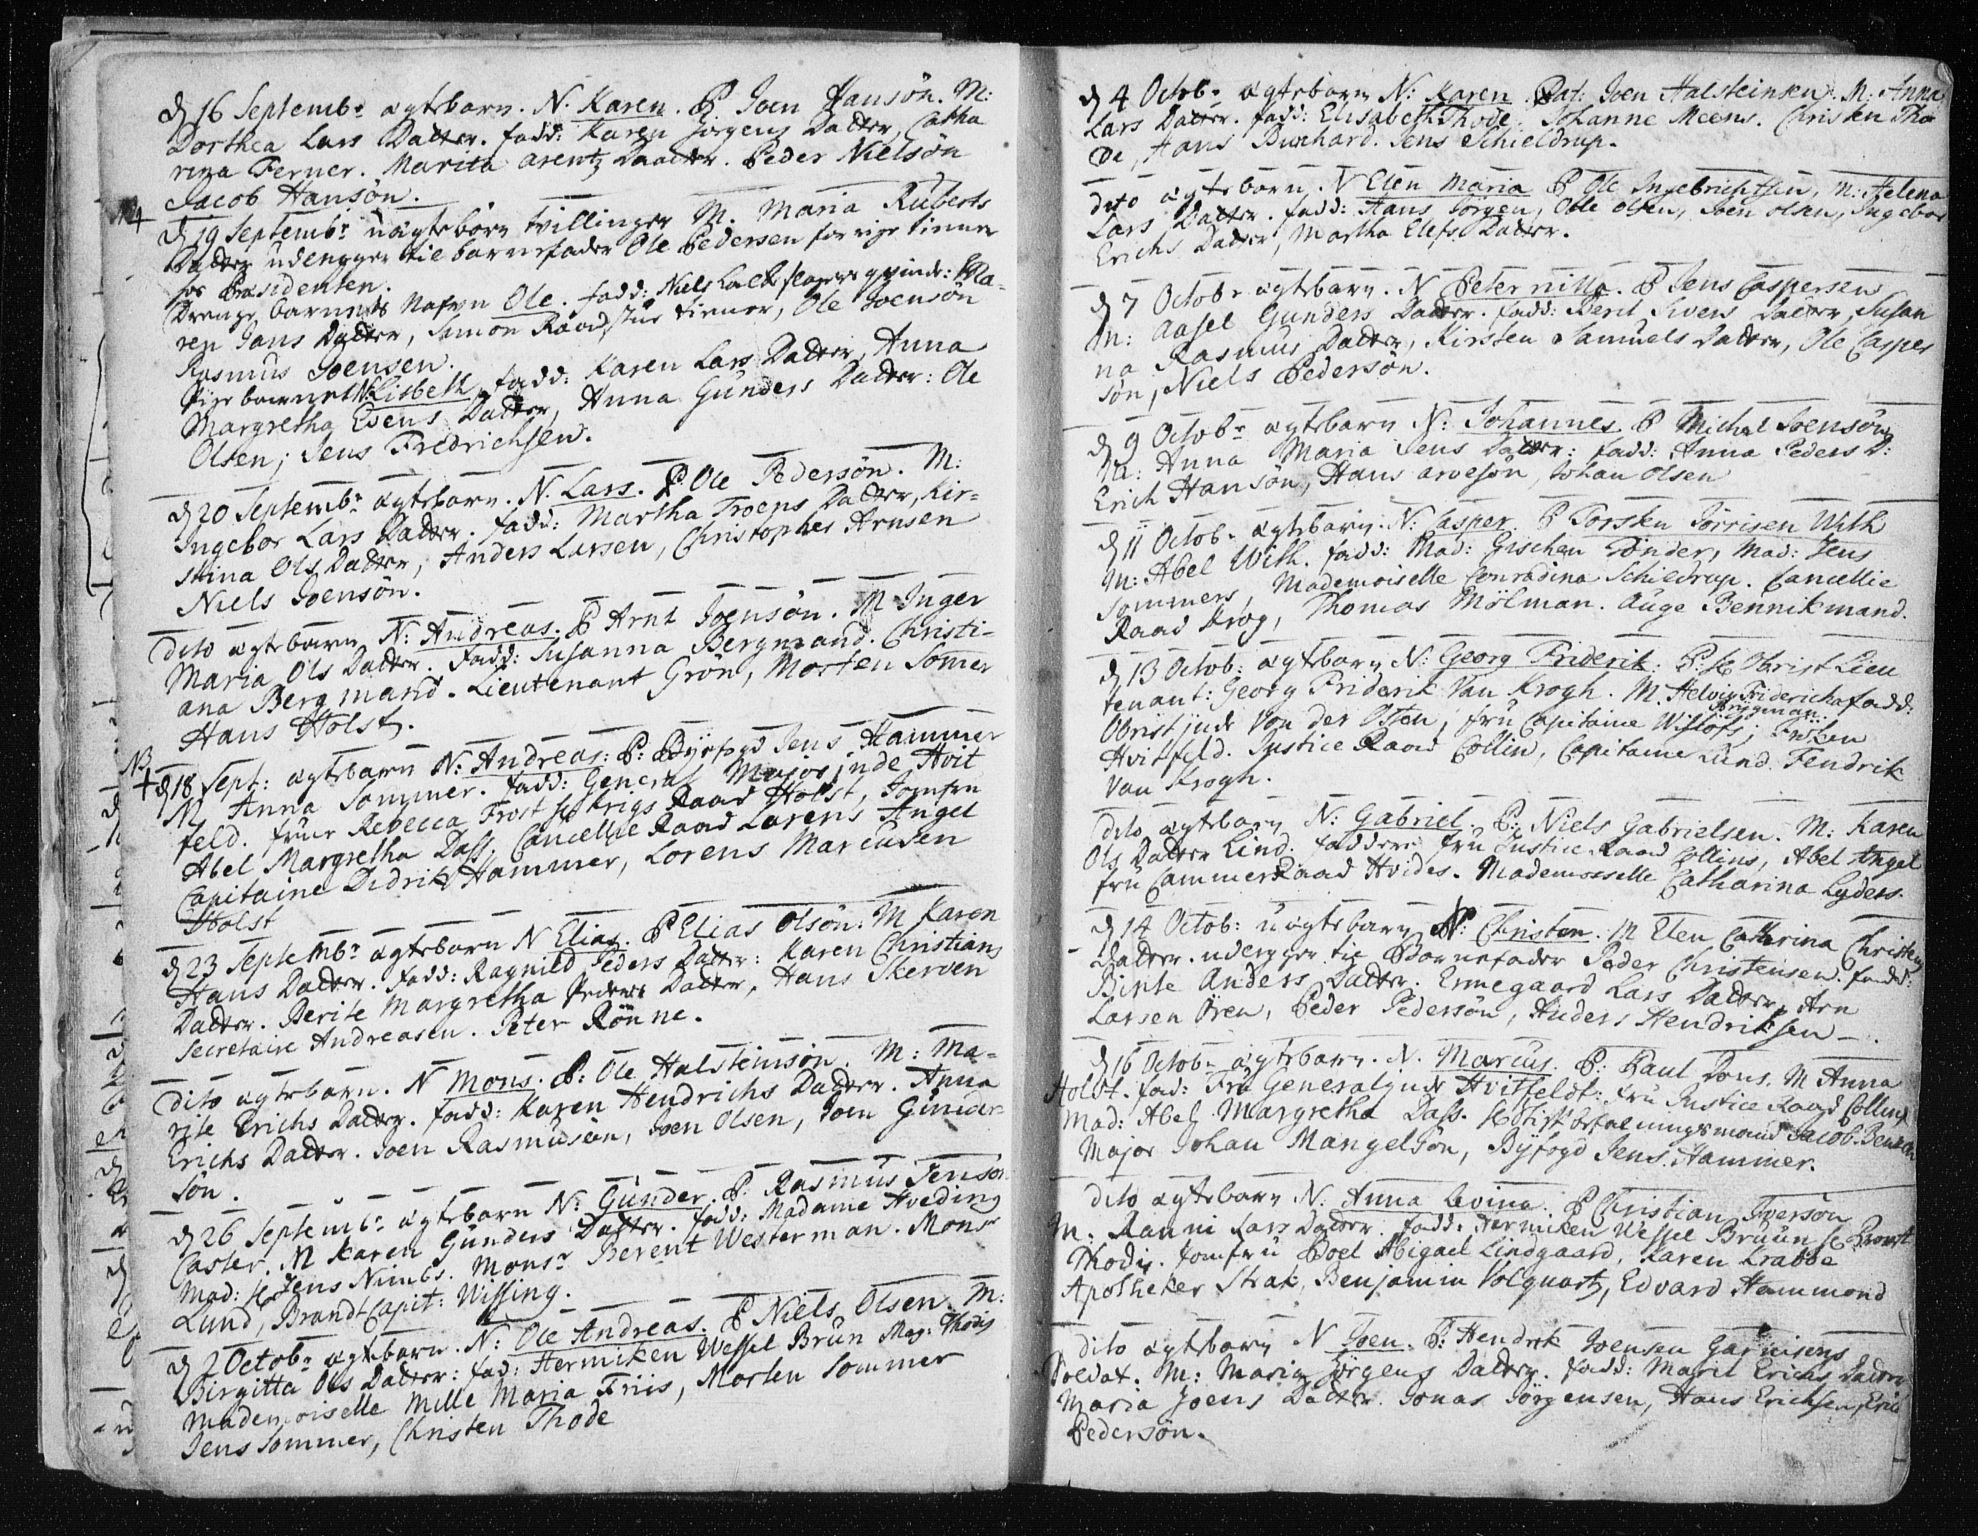 d 16 Septembr ægtebarn. N. Karen. P Joen Hansön. M:
Dorthea Lars Datter. fadd: Karen Jörgens Datter, Catha
rina Ferner. Marita arentz Daatter. Peder Nielsön
Jacob Hansön.
d 19 Septembr uægtebörn tvillinger M. Maria Ruberts
Datter udlegger til barnefader Ole Pedersen for rige tienner
for Præsidenten.
Drenge barnets Nafvn Ole. fadd: Niels qvinde: Ma-
ren Jans Datter, Simon Raadstue tienner, Ole Joensön
Rasmus Joensen.
Pige barnet N: Lisbeth, fadd: Karen Lars Datter, Anna
Margretha Evens Datter, Anna Gunders Datter: Ole
Olsen, Jens Fredrichsen.
d 20 Septembr ægtebarn. N. Lars. P Ole Pedersön. M:
Ingebor Lars Datter. fadd: Martha Troens Datter, Kir-
stina Ols Datter, Anders Larsen, Christopher Arnsen
Niels Joensön.
dito ægtebarn N: Andreas. P Arnt Joensön. M Inger
Maria Ols Datter. Fadd: Susanna Bergmand. Christi-
ana Bergmand. Lieutenant Grön, Morten Somer
Hans Holst.
NB
d 18 Sept: ægtebarn N: Andreas: P: Byfogd Jens Hammer
M Anna Sommer. fadd: General Majorinde Hvit
feld. fruer Rebecca Frost sl. Krigs Raad Holst, Jomfru
Abel Margretha Dass. Cancellie Raad Lorens Angel
Capitaine Didrik Hammer, Lorens Marcusen
Holst
d 23 Septembr ægtebarn N Elias. P Elias Olsön. M Karen
Hans Datter. fadd: Ragnild Peders Datter: Karen Christians
Datter. Berite Margretha Peders Datter, Hans Skerven
Secretaire Andreasen. Peter Rönne.
dito ægtebarn. N Mons. P: Ole Halsteinsön. M: Ma-
rite Erichs Datter. fadd: Karen Hendrichs Datter. Anna
Erichs Datter. Joen Rasmusön, Joen Olsen, Joen Gunder-
sön.
d 26 Septembr ægtebarn N: Gunder. P: Rasmus Jensön
Caster. M Karen Gunders Datter. fadd: Madame Hveding
Mad: sl Jens Nimbs. Monsr Berent Westerman. Monsr
Lund, Brandt Capit: Wissing.
d 2 Octobr ægtebarn. N: Ole Andreas. P Niels Olsen. M:
Birgitta Ols Datter: fad: Hermiken Wessel Brun Mag: Thodis
Mademoiselle Mille Maria Friis, Morten Sommer
Jens Sommer, Christen Thode
d 4 Octobr ægtebarn N: Karen. Pat: Joen Halsteinsen. M: Anna
Lars Datter. fadd: Elisabeth Thode. Johanne Meens. Christen Tho
de, Hans Burchard. Jens Schieldrup.
dito ægtebarn. N Elen Maria P Ole Ingebrichtsen, M: Helena
Lars Datter. fadd: Hans Jörgen, Ole Olsen, Joen Olsen, Ingebor
Erichs Datter, Martha Elefs Datter.
d 7 Octobr ægtebarn. N Peternilla. P Jens Caspersen
M: Aasel Gunders Datter. fadd: Berit Sivers Datter, Susan
na Rasmus Datter, Kirsten Samuels Datter, Ole Casper
sön, Niels Pedersön.
d 9 Octobr ægtebarn N: Johannes. P Michel Svensön
M: Anna Maria Jens Datter: fadd: Anna Peders D:
Erich Hansön, Hans arvesön, Johan Olsen
d 11 Octob. ægtebarn. N: Casper. P Torsten Törrisen With
M: Abel With. fadd: Mad: Gischen Tönder, Mad: Jens
Sommers, Mademoiselle Conradina Schieldrup. Cancellie
Raad Krog, Thomas Mölman. Auge Bennikmand.
d 13 Octob: ægtebarn N: Georg Friderik: P: Hr Obrist Lieu
tenant: Georg Friderik Van Krogh. M. Helvig Fridericha
Brygman. fadd:
Obristjnde Von der Osten, fru Capitaine Wislöfs, frøken
Hvitfeld. Justice Raad Collin, Capitaine Lund. Fendrik
Van Krogh.
dito ægtebarn N: Gabriel. P: Niels Gabrielsen. M: Karen
Ols Datter Lind. faddere fru Justice Raad Collins, Abel Angel
fru Cammer Raad Hvides. Mademoiselle Catharina Lyders.
d 14 Octob: uægtebarn N: Christen. M Elen Cathrina Christens
Datter. udlegger til Barnefader Peder Christensen. fadd:
Birite Anders Datter. Ermegaard Lars Datter, Arn
Larsen Ören, Peder Pedersön, Anders Hendriksen
d 16 Octobr ægtebarn. N. Marcus. P: Paul Dons. M Anna
Holst. fad: Fru Generalinde Hvitfeldt: fru Justice Raad Collins
Mad: Abel Margretha Dass. Hr Stift befalningsmand Jacob Benzon
Major Johan Mangelsön, Byfogd Jens Hammer.
dito ægtebarn N. Anna Levina. P Christian Iversön
M. Ranni Lars Datter. fadd: Hermiken Wessel Bruun sl Provst
Thodis. Jomfru Boel Abigael Lindgaard, Karen Krabbe
Apotheker Strak, Benjamin Volquartz, Edvard Hammond
dito ægtebarn N Joen. P: Hendrik Joensen Garnisons
Soldat. M: Maria Jörgens Datter. fadd: Marit Erichs Datter
Maria Joens Datter. Jonas Jörgensen, Hans Erichsen, Erich
Pedersön.